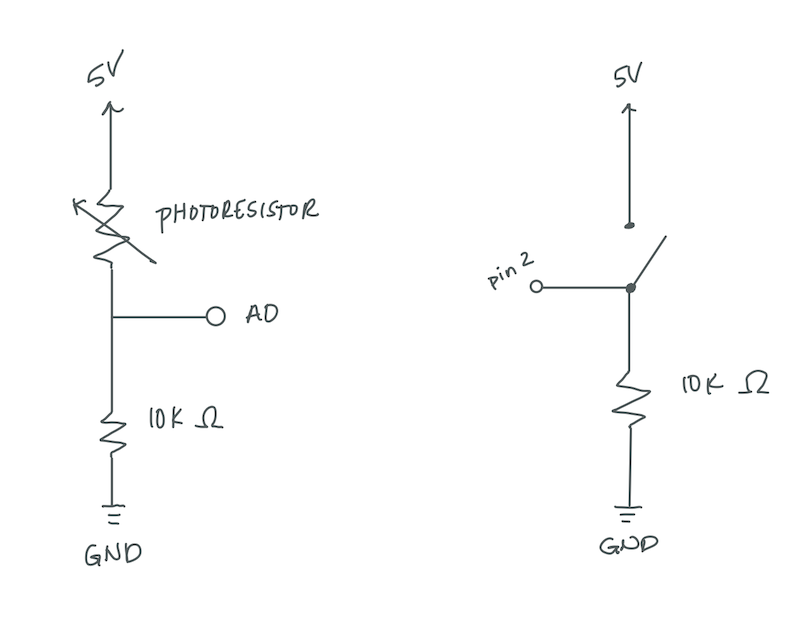 5V
PHOTORESISTOR
A0
10K Ω
GND
5V
pin 2
10K Ω
GND